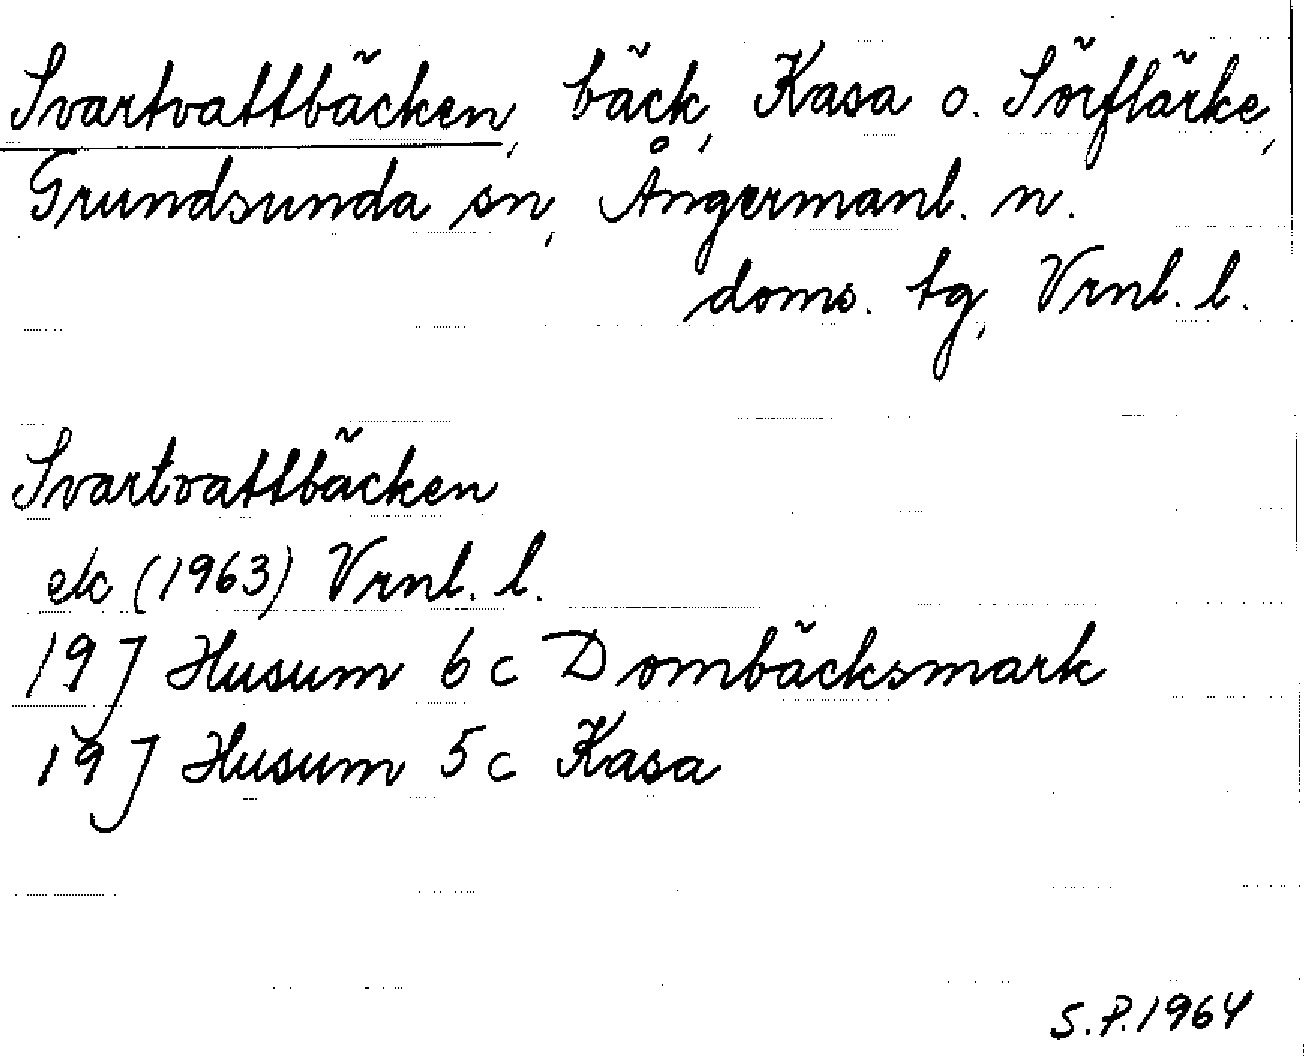 Svartvattbäcken, bäck, Kasa o. Sörflärke,
Grundsunda sn, Ångermanl. n.
doms. tg, Vrnl. l.
Svartvattbäcken
ek (1963) Vrnl. l.
19 J Husum 6 c Dombäcksmark
19 J Husum 5 c Kasa
S.P. 1964